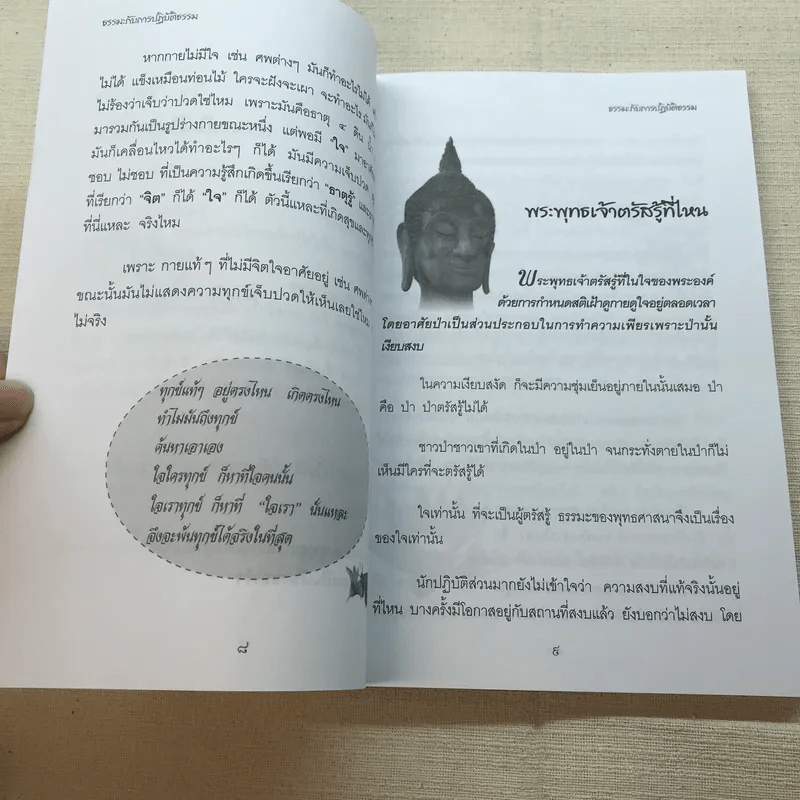 ธรรมะกับการปฏิบัติธรรม
หากกายไม่มีใจ เช่น ศพต่างๆ มันก็ทำอะไรไม่ได้
ไม่ได้ แข็งเหมือนท่อนไม้ ใครจะฝังจะเผา จะทำอะไร มันก็
ไม่ร้องว่าเจ็บว่าปวดใช่ไหม เพราะมันคือธาตุ ๔ ดิน
มารวมกันเป็นรูปร่างกายขณะหนึ่ง แต่พอมี "ใจ"
มันก็เคลื่อนไหวได้ทำอะไรๆ ก็ได้ มันมีความเจ็บปวด
ชอบ ไม่ชอบ ที่เป็นความรู้สึกเกิดขึ้นเรียกว่า "ธาตุรู้"
ที่เรียกว่า "จิต" ก็ได้ "ใจ" ก็ได้ ตัวนี้แหละที่เกิดสุขและทุกข์
ที่นี่แหละ จริงไหม
เพราะ กายแท้ๆ ที่ไม่มีจิตใจอาศัยอยู่ เช่น ศพต่างๆ
ขณะนั้นมันไม่แสดงความทุกข์เจ็บปวดให้เห็นเลยใช่ไหม
ไม่จริง
ทุกข์แท้ๆ อยู่ตรงไหน เกิดตรงไหน
ทำไมมันถึงทุกข์
ค้นหาเอาเอง
ใจใครทุกข์ ก็หาที่ใจคนนั้น
ใจเราทุกข์ ก็หาที่ "ใจเรา" นั่นแหละ
จึงจะพ้นทุกข์ได้จริงในที่สุด
๘
ธรรมะกับการปฏิบัติธรรม
พระพุทธเจ้าตรัสรู้ที่ไหน
พระพุทธเจ้าตรัสรู้ที่ในใจของพระองค์
ด้วยการกำหนดสติเฝ้าดูกายดูใจอยู่ตลอดเวลา
โดยอาศัยป่าเป็นส่วนประกอบในการทำความเพียรเพราะป่านั้น
เงียบสงบ
ในความเงียบสงัด ก็จะมีความชุ่มเย็นอยู่ภายในนั้นเสมอ ป่า
คือ ป่า ป่าตรัสรู้ไม่ได้
ชาวป่าชาวเขาที่เกิดในป่า อยู่ในป่า จนกระทั่งตายในป่าก็ไม่
เห็นมีใครที่จะตรัสรู้ได้
ใจเท่านั้น ที่จะเป็นผู้ตรัสรู้ ธรรมะของพุทธศาสนาจึงเป็นเรื่อง
ของใจเท่านั้น
นักปฏิบัติส่วนมากยังไม่เข้าใจว่า ความสงบที่แท้จริงนั้นอยู่
ที่ไหน บางครั้งมีโอกาสอยู่กับสถานที่สงบแล้ว ยังบอกว่าไม่สงบ โดย
๙